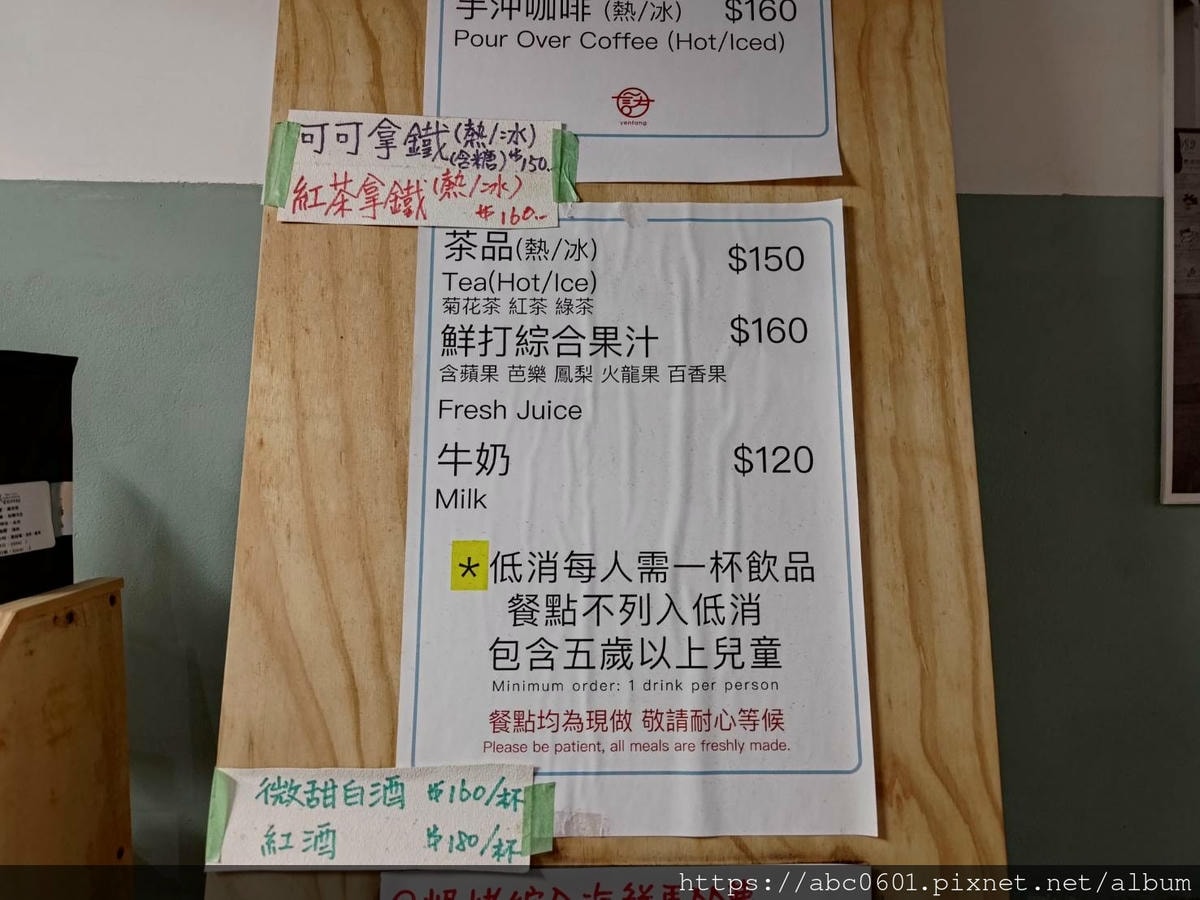 手沖咖啡 (熱/冰) $160
Pour Over Coffee (Hot/Iced)
yentang
可可拿鐵(熱/冰)
(含糖) $150.-
紅茶拿鐵(熱/冰)
$160.-
茶品(熱/冰) $150
Tea(Hot/Ice)
菊花茶 紅茶 綠茶
鮮打綜合果汁 $160
含蘋果 芭樂 鳳梨 火龍果 百香果
Fresh Juice
牛奶 $120
Milk
*低消每人需一杯飲品
餐點不列入低消
包含五歲以上兒童
Minimum order: 1 drink per person
餐點均為現做 敬請耐心等候
Please be patient, all meals are freshly made.
微甜白酒 $160/杯
紅酒 $180/杯
https://abc0601.pixnet.net/album